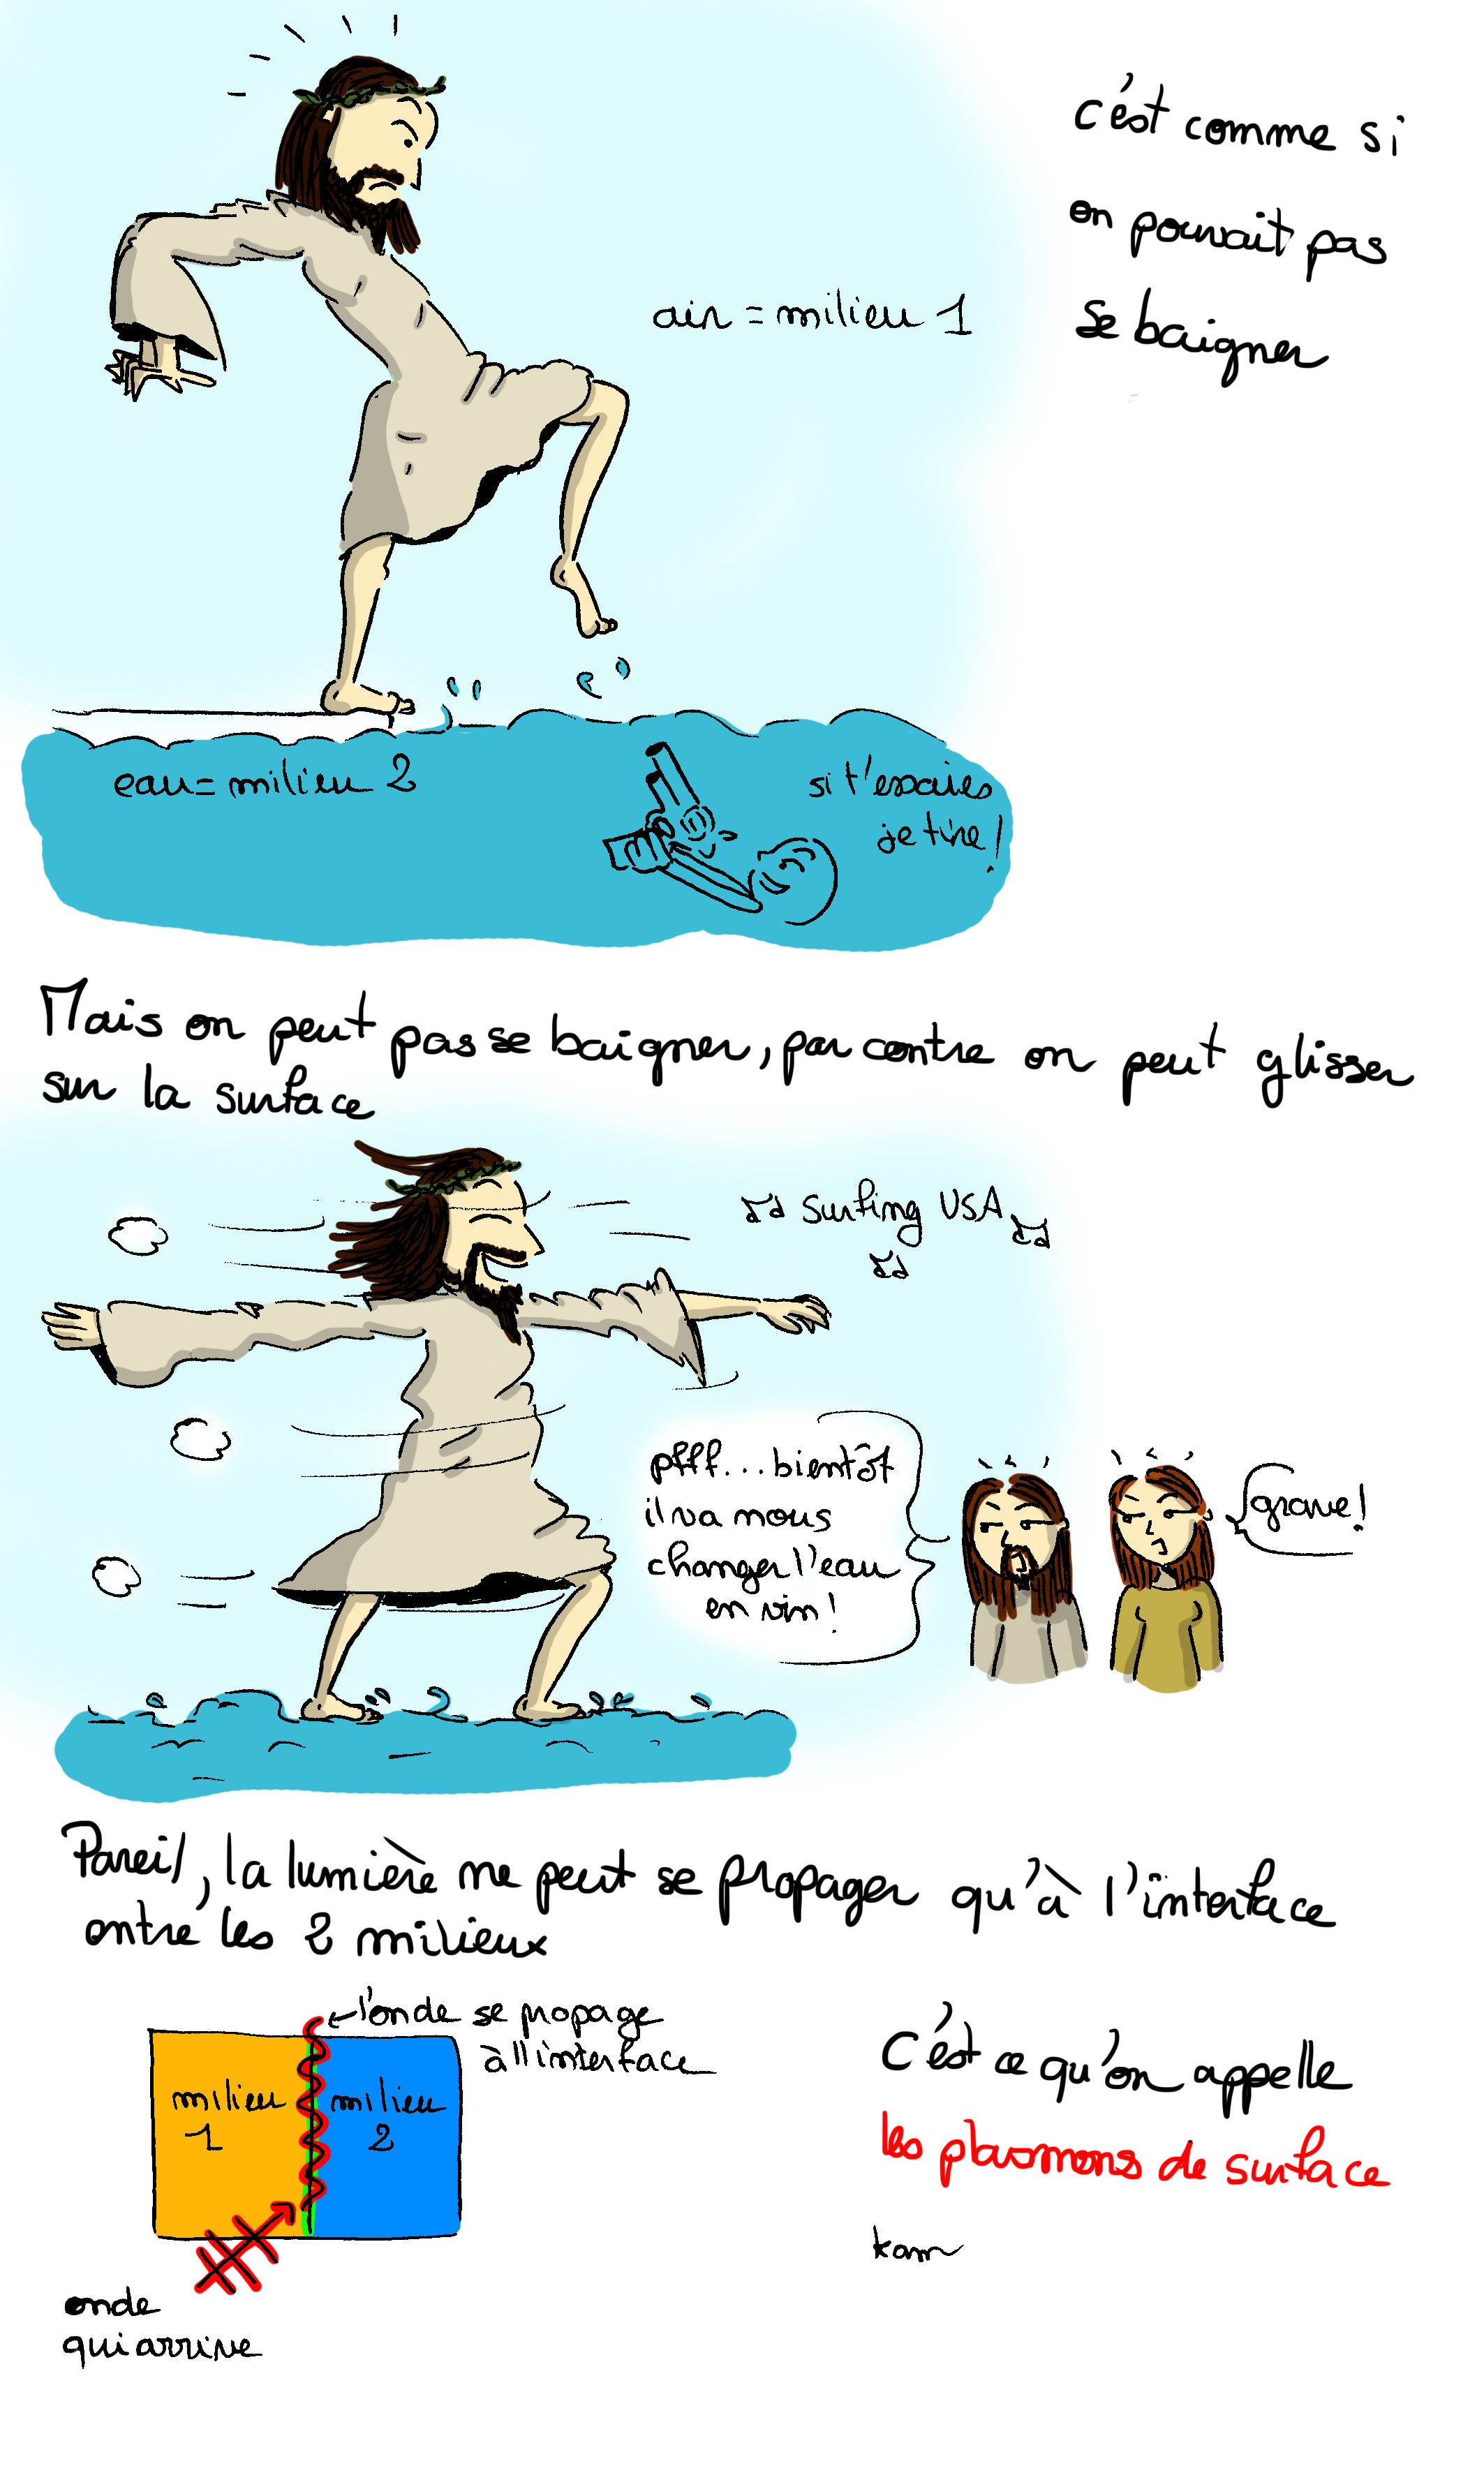 c'est comme si
on pouvait pas
se baigner
air = milieu 1
eau = milieu 2
si t'essaies
je tire !
Mais on peut pas se baigner, par contre on peut glisser
sur la surface
♫ surfing USA ♫
♫
pfff... bientôt
il va nous
changer l'eau
en vin !
grave !
Pareil, la lumière ne peut se propager qu'à l'interface
entre les 2 milieux
l'onde se propage
à l'interface
milieu
1
milieu
2
onde
qui arrive
C'est ce qu'on appelle
les plasmons de surface
kam